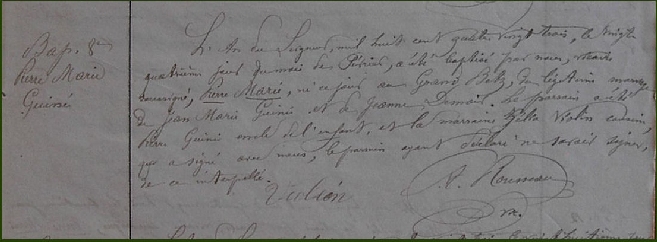 Bap. 8e
Pierre Marie
Guiné
L'An du Seigneur, mil huit cent quatre vingt trois, le vingt
quatrième jour du mois de Février, a été baptisé par nous, vicaire
soussigné, Pierre Marie, né ce jour au Grand Betz, du légitime mariage
de Jean Marie Guiné et de Jeanne Le parrain a été
Pierre Guiné oncle de l'enfant, et la marraine
qui a signé avec nous, le parrain ayant déclaré ne savoir signer,
de ce interpellé.